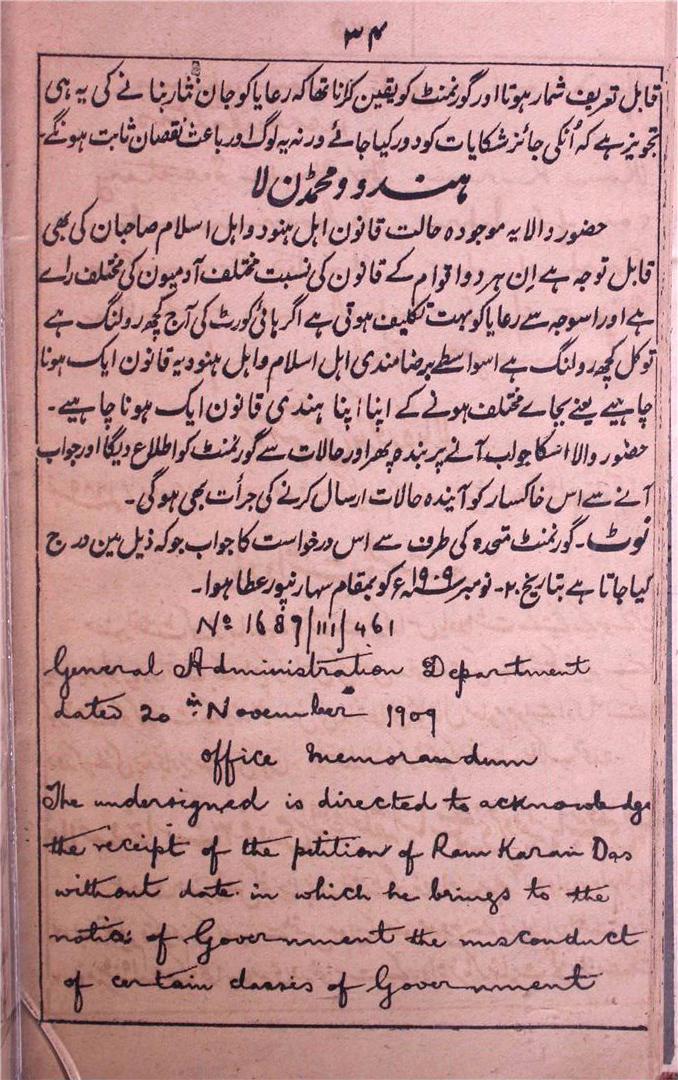 ۳۴
قابل تعریف شمار ہوتا اور گورنمنٹ کو یقین کرنا تھا کہ رعایا کو جان نثار بنانے کی یہ ہی
تجویز ہے کہ اُنکی جائز شکایات کو دور کیا جائے ورنہ یہ لوگ اور باعث نُقصان ثابت ہونگے۔
ہندو ومحمڈن لا
حضور والا یہ موجودہ حالت قانون اہل ہنود و اہل اسلام صاحبان کی بھی
قابل توجہ ہے اِن ہر دو اقوام کے قانون کی نسبت مختلف آدمیون کی مختلف راے
ہے اور اسوجہ سے رعایا کو بہت تکلیف ہوتی ہے اگر ہائی کورٹ کی آج کچھ رولنگ ہے
تو کل کچھ رولنگ ہے اسواسطے برضامندی اہل اسلام و اہل ہنود یہ قانون ایک ہونا
چاہیے یعنے بجاے مختلف ہونے کے اپنا اپنا ہندی قانون ایک ہونا چاہیے۔
حضور والا اسکا جواب آنے پر بندہ پھر اور حالات سے گورنمنٹ کو اطلاع دیگا اور جواب
آنے سے اس خاکسار کو آیندہ حالات ارسال کرنے کی جرأت بھی ہوگی۔
نوٹ۔ گورنمنٹ متحدہ کی طرف سے اس درخواست کا جواب جو کہ ذیل مین درج
کیا جاتا ہے بتاریخ ۲۰۔ نومبر ۱۹۰۹ء کو بمقام سہارنپور عطا ہوا۔
No 1687/III/461
General Administration Department
dated 20th November 1909
office memorandum
The undersigned is directed to acknowledge
the receipt of the petition of Ram Karan Das
without date in which he brings to the
notice of Government the misconduct
of certain classes of Government